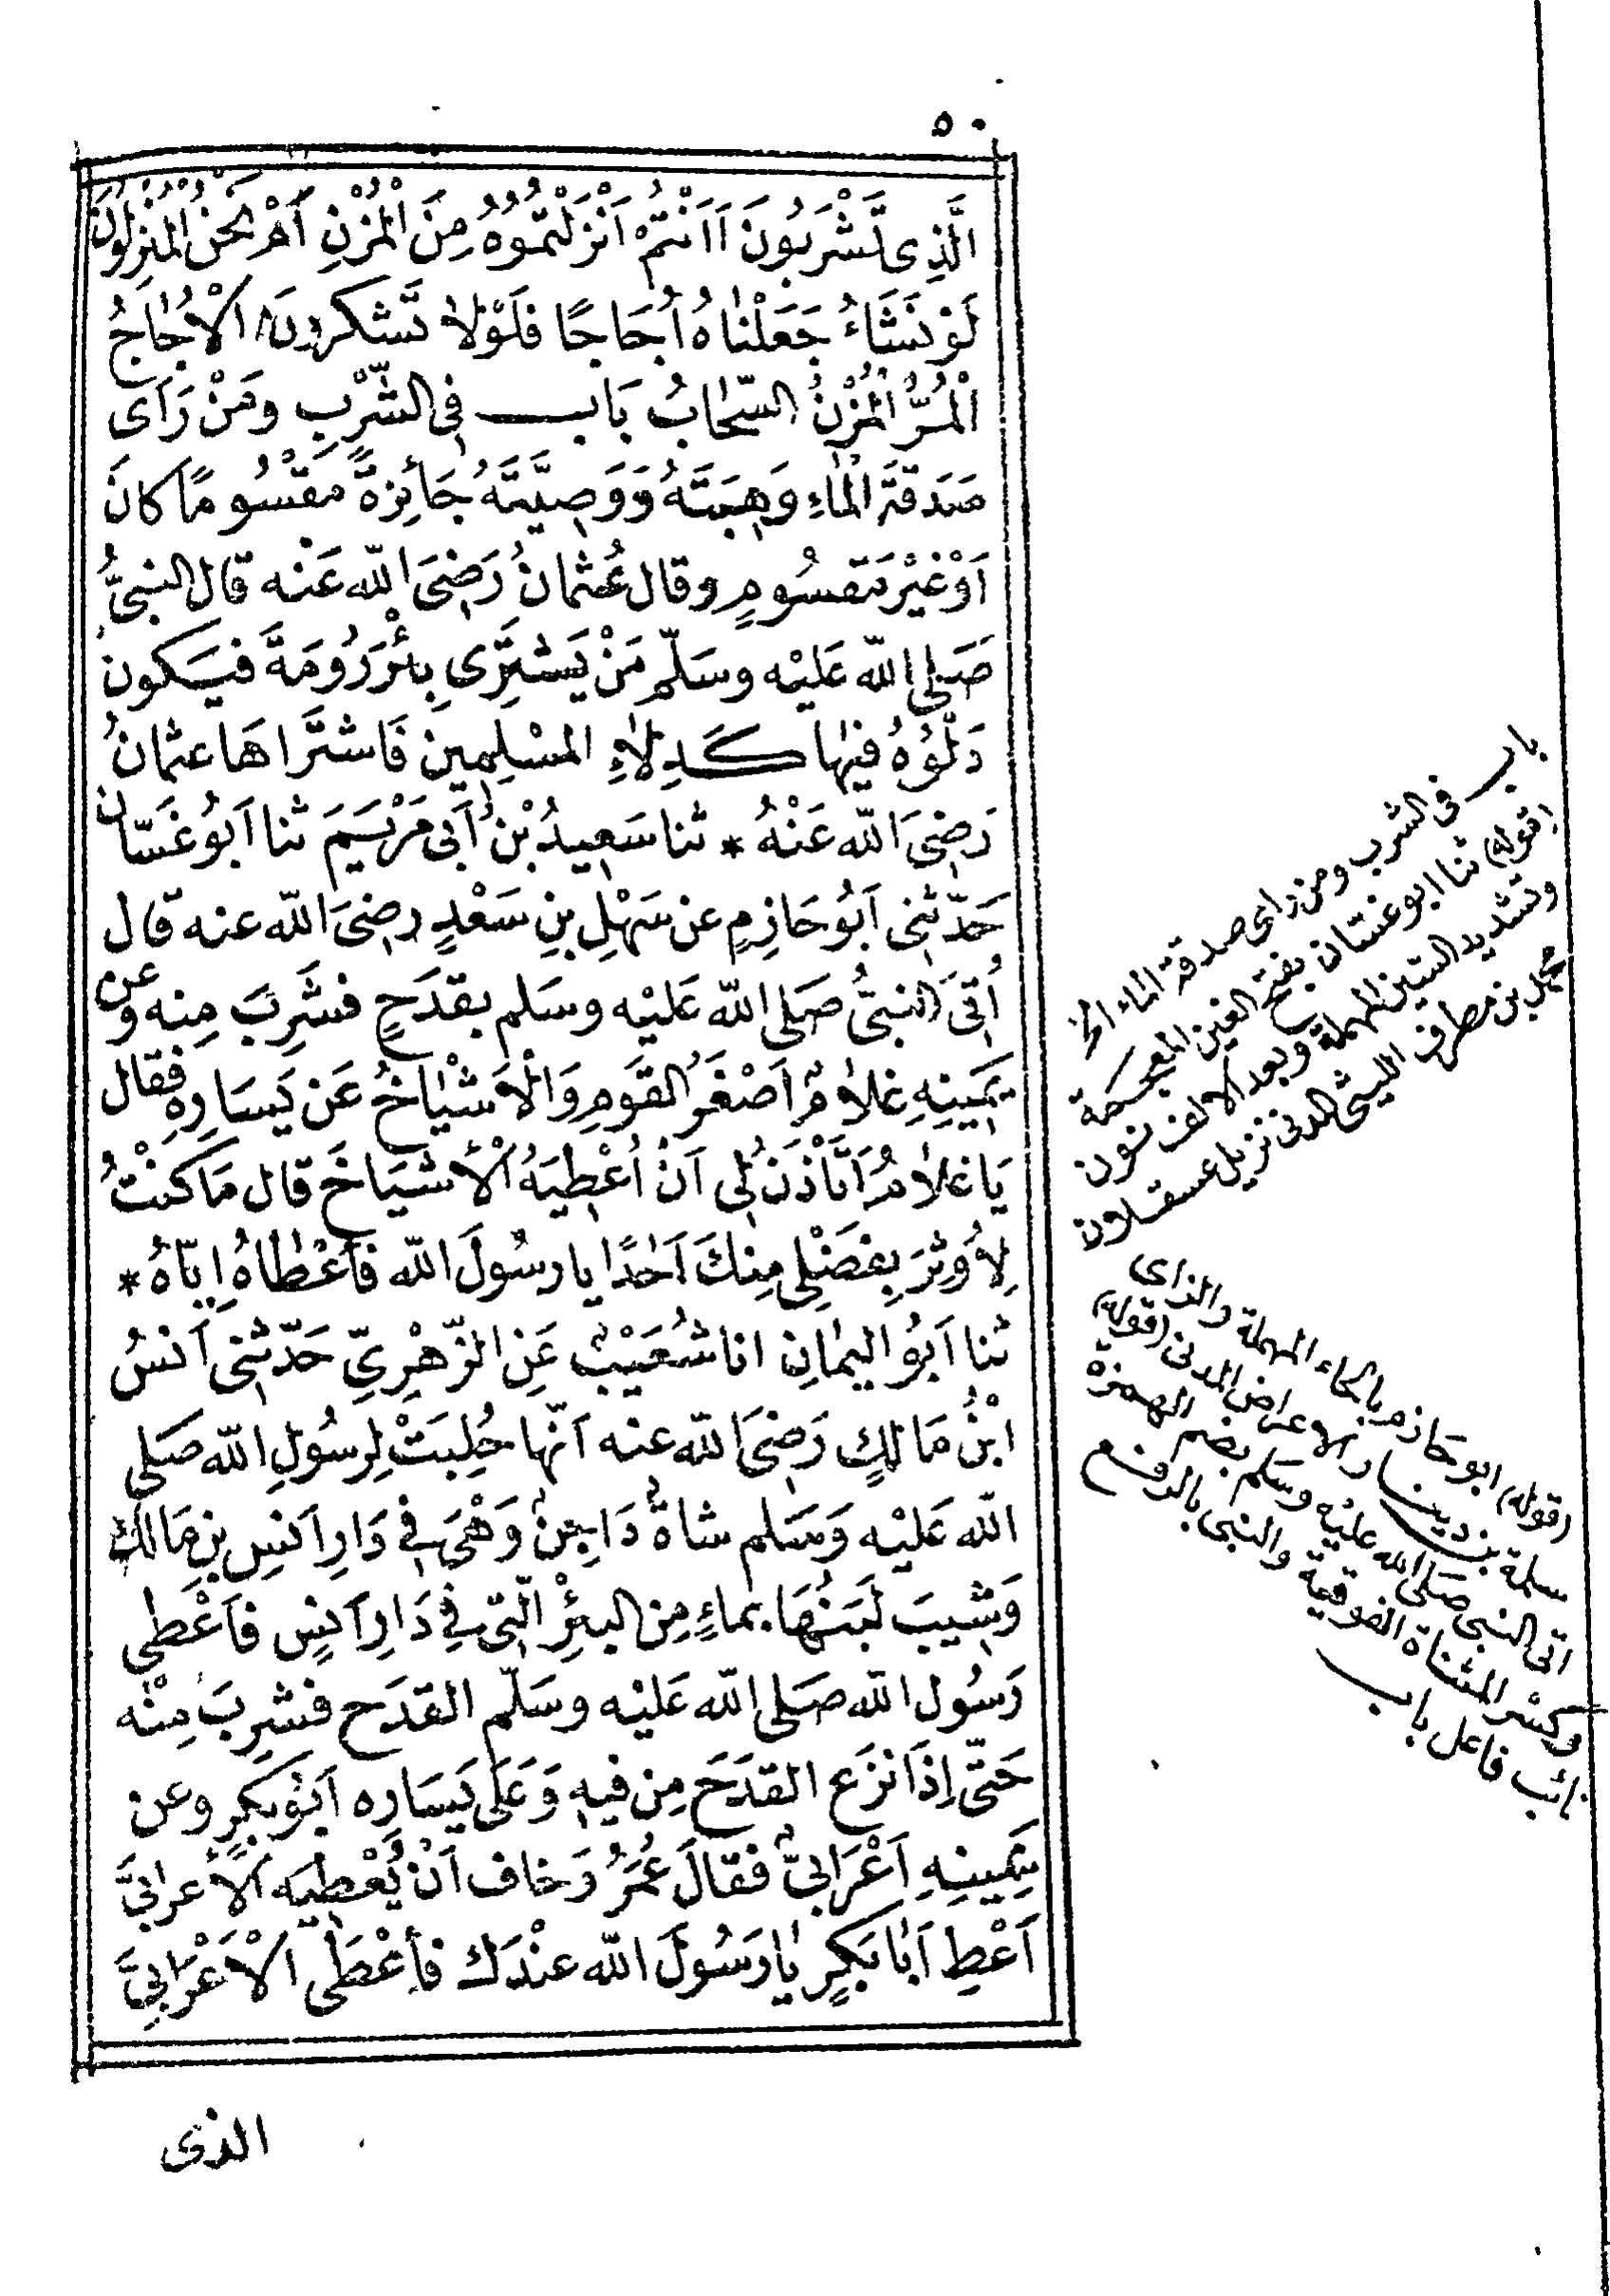 ٥٠
الَّذِى تَشْرَبُونَ أَأَنْتُمْ أَنْزَلْتُمُوهُ مِنَ الْمُزْنِ أَمْ نَحْنُ الْمُنْزِلُونَ
لَوْ نَشَاءُ جَعَلْنَاهُ أُجَاجًا فَلَوْلَا تَشْكُرُونَ الْأُجَاجُ
الْمُرُّ الْمُزْنُ السَّحَابُ بَابٌ فِى الشِّرْبِ وَمَنْ رَأَى
صَدَقَةَ الْمَاءِ وَهِبَتَهُ وَوَصِيَّتَهُ جَائِزَةً مَقْسُومًا كَانَ
أَوْ غَيْرَ مَقْسُومٍ وقال عُثْمَانُ رَضِىَ اللّٰه عَنْه قال النبىُّ
صَلى اللّٰه عَلَيْه وسَلّم مَنْ يَشْتَرِى بِئْرَ رُومَةَ فَيَكونُ
دَلْوُهُ فِيهَا كَدِلَاءِ المسْلِمِينَ فَاشْتَرَاهَا عثمانُ
رَضِىَ اللّٰه عَنْهُ * ثنا سَعِيدُ بْنُ أَبى مَرْيَمَ ثنا أَبُو غَسَّان
حَدّثَنِى أَبُو حَازِمٍ عن سَهْلِ بنِ سَعْدٍ رضِىَ اللّٰه عنه قال
أُتِىَ النبىُّ صَلى اللّٰه عَلَيْه وسَلم بقدَحٍ فشَرِبَ مِنه وعن
يَمِينِهِ غُلَامٌ أَصْغَرُ القَوْمِ وَالْأَشْيَاخُ عَن يَسَارِهِ فقال
يَا غُلَامُ أَتَأْذَنُ لِى أَنْ أُعْطِيَهُ الْأَشْيَاخَ قال مَا كنْتُ
لِأُوثِرَ بِفَضْلِى مِنْكَ أَحَدًا يا رسُولَ اللّٰه فأَعْطَاهُ إِيّاهُ *
ثنا أَبُو اليَمَانِ انا شُعَيْبٌ عَنِ الزّهْرِيِّ حَدّثَنِى أَنَسُ
ابْنُ مَالِكٍ رَضِىَ اللّٰه عنه أَنَّها حُلِبَتْ لِرسُولِ اللّٰه صَلى
اللّٰه عَلَيْه وَسَلم شاةٌ دَاجِنٌ وَهْىَ فى دَارِ أَنَسِ بنِ مَالكٍ
وَشِيبَ لَبَنُهَا بماءٍ مِن البئْرِ الّتِى فِى دَارِ أَنَسٍ فأَعْطى
رَسُول اللّٰه صَلى اللّٰه عَلَيْه وسَلّم القدَح فشرِبَ مِنْه
حَتّى إِذَا نزَع القدَحَ مِن فيهِ وَعَلَى يَسَاره أَبُو بَكرٍ وعن
يَمِينِهِ أَعْرَابىٌّ فقالَ عُمَرُ وَخاف أَنْ يُعْطِيَه الأعرابىَّ
أَعْطِ أَبَا بَكرٍ يَا رَسُولَ اللّٰه عنْدَك فأَعْطَى الْأَعْرَابِىَّ
الذى
باب فى الشرب ومن راى صدقة الماء الخ
(قوله) ثنا ابو غسّان بفتح الغين المعجمة
وتشديد السين المهملة وبعد الالف نون
محمد بن مطرف الليثى المدنى نزيل عسقلان
(قوله) ابو حَازم بالحاء المهملة والزاى
سلمة بن دينار الاعرج المدنى (قوله)
اتى النبى صَلى اللّٰه عليْه وسَلم بضم الهمزة
وكسْر المثناة الفوقية والنبى بالرفع
نائب فاعل باب